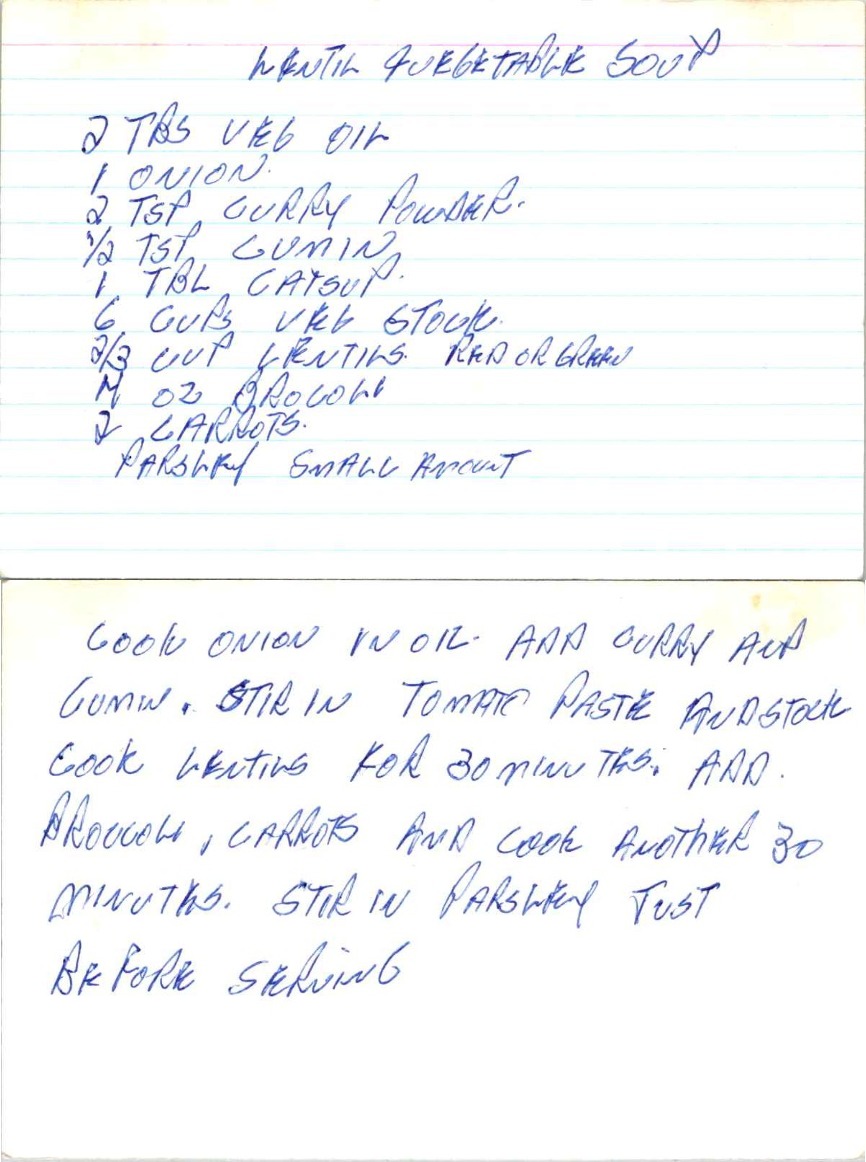 LENTIL & VEGETABLE SOUP
2 TBS VEG OIL
1 ONION.
2 TSP CURRY POWDER.
1/2 TSP CUMIN
1 TBL CATSUP.
6 CUPS VEG STOCK.
2/3 CUP LENTILS. RED OR GREEN
OZ BROCOLI
2 CARROTS.
PARSLEY SMALL AMOUNT
COOK ONION IN OIL. ADD CURRY AND
CUMIN. STIR IN TOMATO PASTE AND STOCK
COOK LENTILS FOR 30 MINUTES. ADD.
BROCCOLI, CARROTS AND COOK ANOTHER 30
MINUTES. STIR IN PARSLEY JUST
BEFORE SERVING